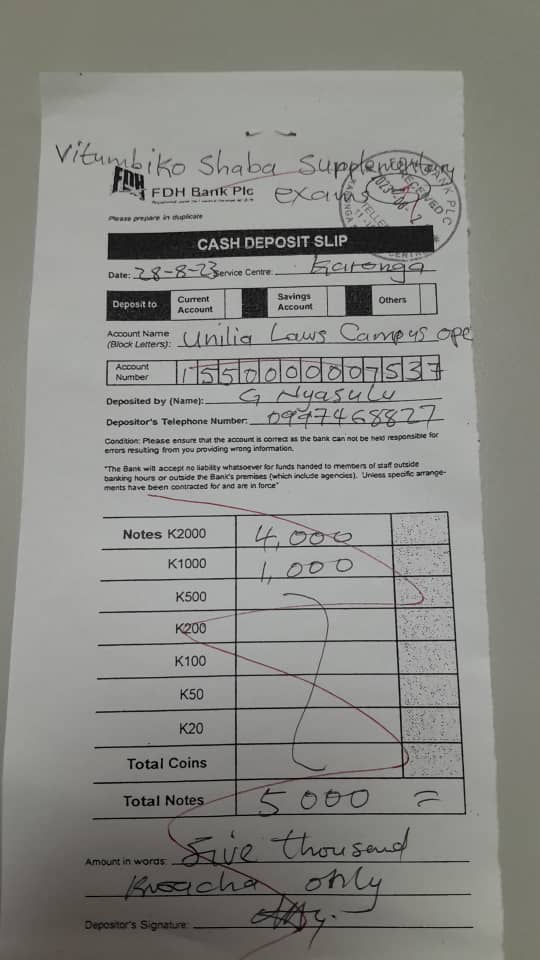 Vitumbiko Shaba Supplementary
exams
FDH
FDH Bank Plc
Please prepare in duplicate
RECEIVED
TELLER
CASH DEPOSIT SLIP
Date: 28-8-23 Service Centre: Karonga
Deposit to Current Account Savings Account Others
Account Name
(Block Letters): Unilia Laws Campus ope
Account Number 1550000007537
Deposited by (Name): G Nyasulu
Depositor's Telephone Number: 0997468827
Condition: Please ensure that the account is correct as the bank can not be held responsible for
errors resulting from you providing wrong information.
"The Bank will accept no liability whatsoever for funds handed to members of staff outside
banking hours or outside the Bank's premises (which include agencies). 'Unless specific arrange-
ments have been contracted for and are in force"
Notes K2000 4,000
K1000 1,000
K500
K200
K100
K50
K20
Total Coins
Total Notes 5 000 =
Amount in words: Five thousand
Kwacha only
Depositor's Signature: